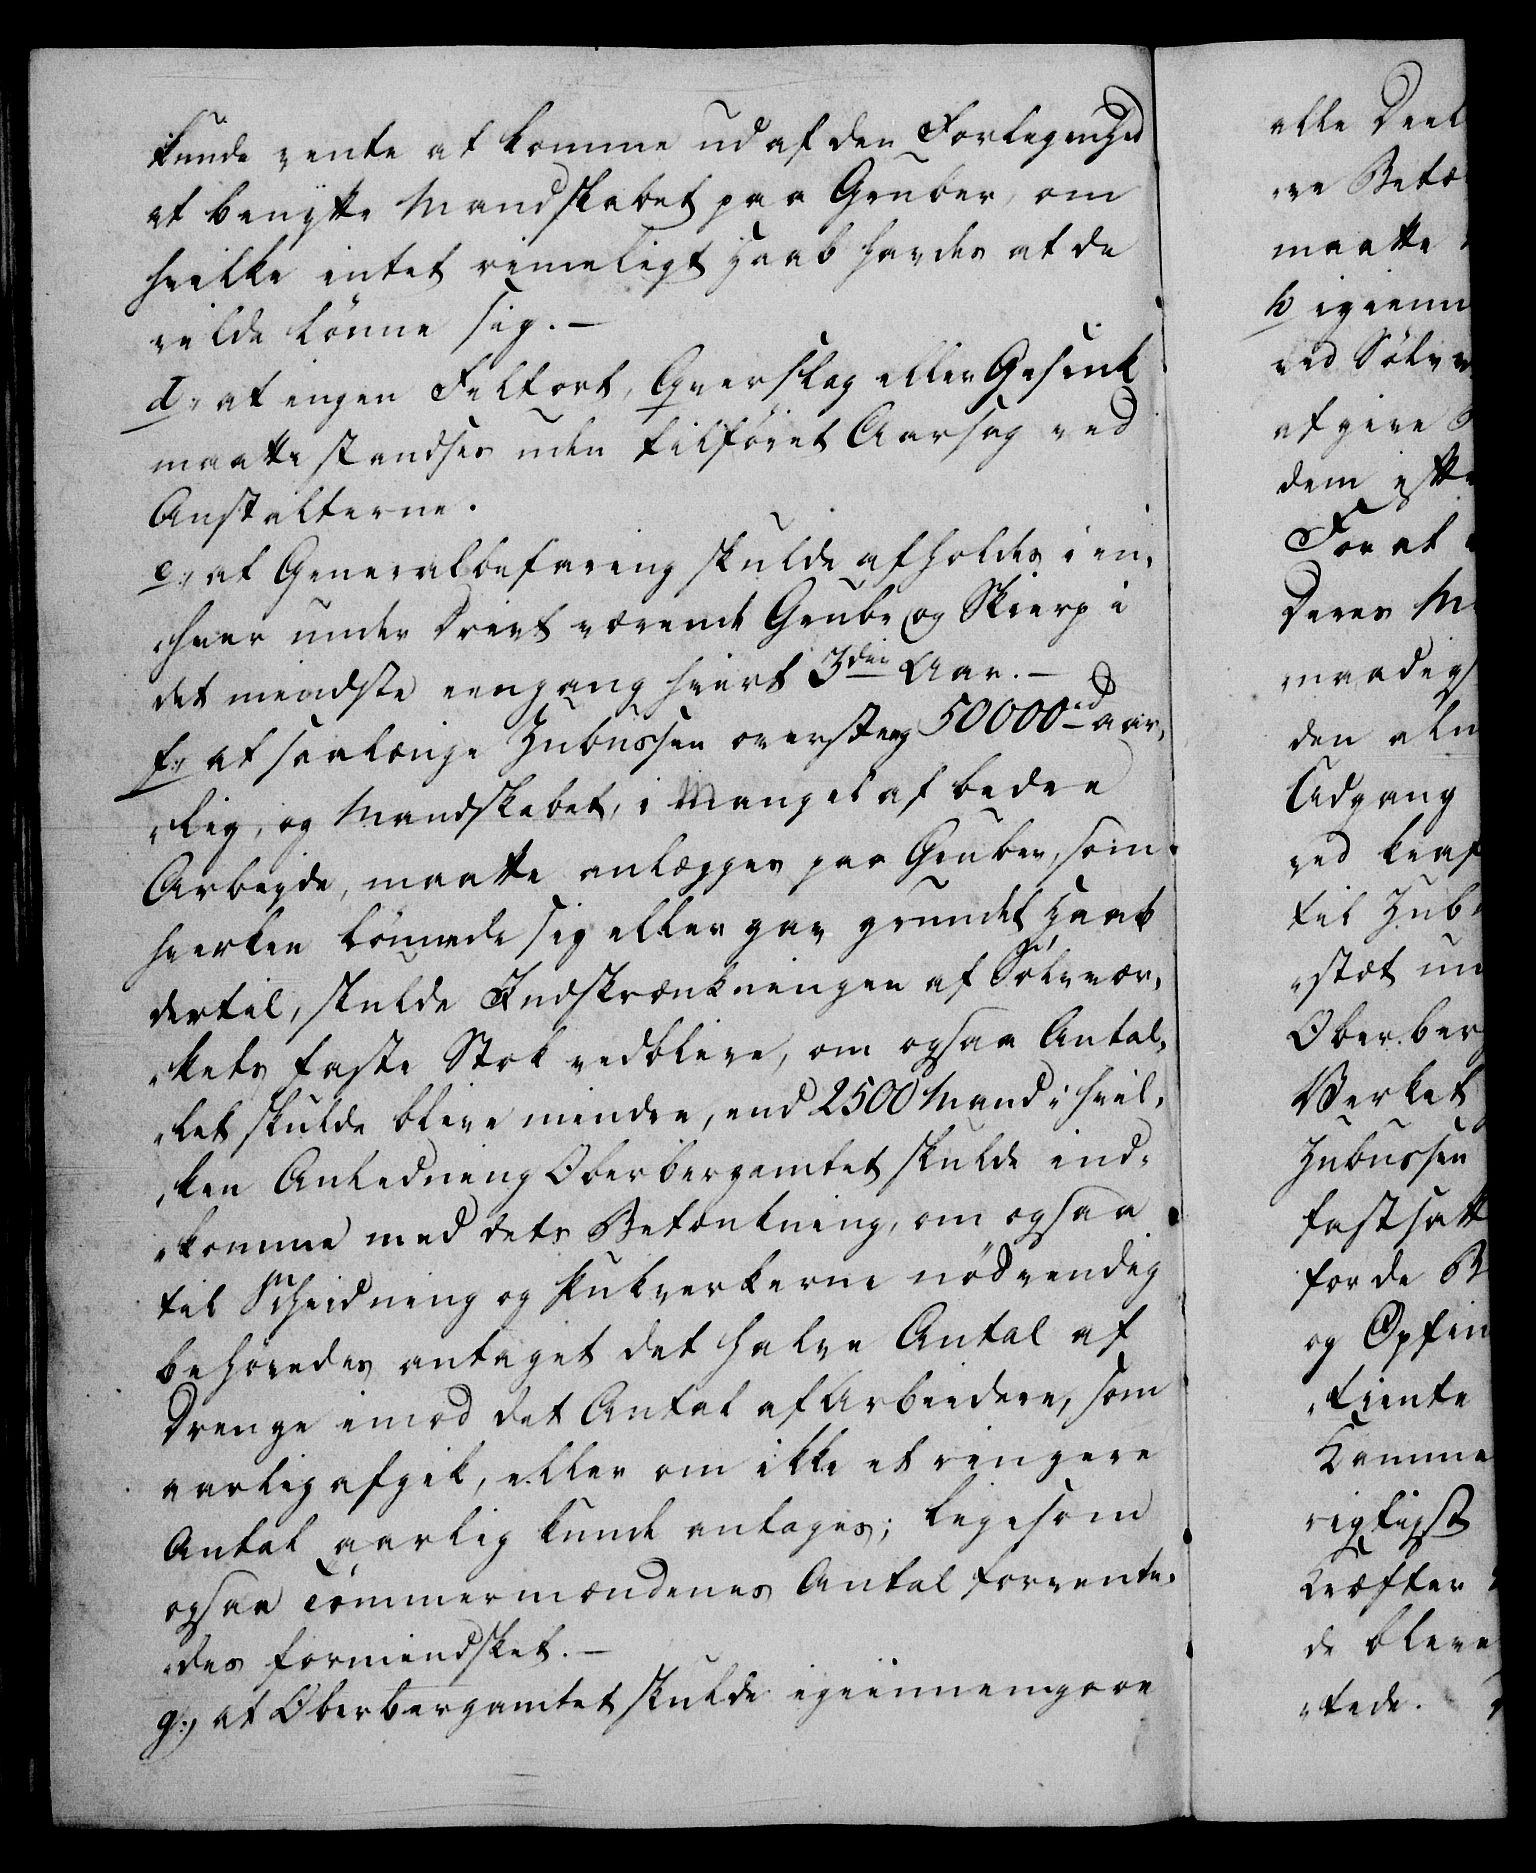 kunde vente at komme ud af den Forlegenhed
at benytte Mandskabet paa Gruber, om
hvilke intet rimeligt Haab havdes at de
vilde lönne sig. –
d., at ingen Feltort, Qverslag eller Gesenk
maatte standses uden tilföiet Aarsag ved
Anstalterne.
e., at Generalbefaring skulde afholdes i en-
„hver under Drivt værende Grube og Skierp i
det mindste eengang hvert 3die Aar. –
f., at saalænge Zubussen oversteeg 50000 rd aar-
„lig, og Mandskabet, i Mangel af bedre
Arbeyde, maatte anlægges paa Gruber, som
hverken lönnede sig eller gav grundet Haab
dertil, skulde Indskrænkningen af Sölvvær-
„kets faste Stok vedblive, om ogsaa Antal-
„let skulde blive mindre, end 2500 Mand i hvil-
„ken Anledning Oberbergamtet skulde ind-
„komme med dets Betænkning, om ogsaa
til Scheidning og Pukverkerne nödvendig
behövedes antaget det halve Antal af
Drenge imod det Antal af Arbeidere, som
aarlig afgik, eller om ikke et ringere
Antal aarlig kunde antages; ligesom
ogsaa Tömmermændenes Antal forvente-
„des formindsket. –
g., at Oberbergamtet skulde igiennemgaae
alle Deel
maatte
h igienn
ved Sölvv
at give
dem
For at
Deres
maadigs
den alm
Adgang
ved kraf
til Zub
„stæt un
Oberber
Verket
Zubussen
fastsatt
for de B
og Opfin
„tiente
Kamme
rigtigst
Kræfter
de bleve
„tede.